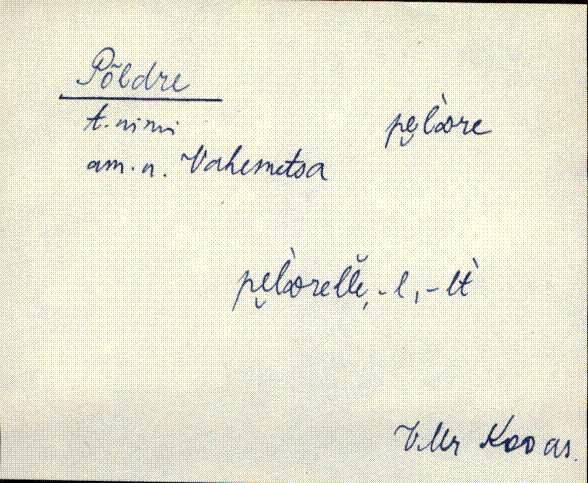 Põldre
t. nimi
am. n. Vahemetsa
pe̮l̀dre
pe̮l̀drelle, -l, -lt̀
VMr Koo as.